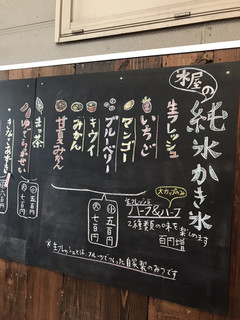 氷屋の
純氷かき氷
生フレッシュ
いちご
マンゴー
ブルーベリー
キウイ
みかん
甘夏みかん
小 五百円
大 七百円
大カップのみ
生フレッシュ
ハーフ&ハーフ
2種類の味を楽しめます
百円増
まっ茶
ゆであずき
小
大 七百円
※生フレッシュとは、フルーツでつくった自家製のみつです